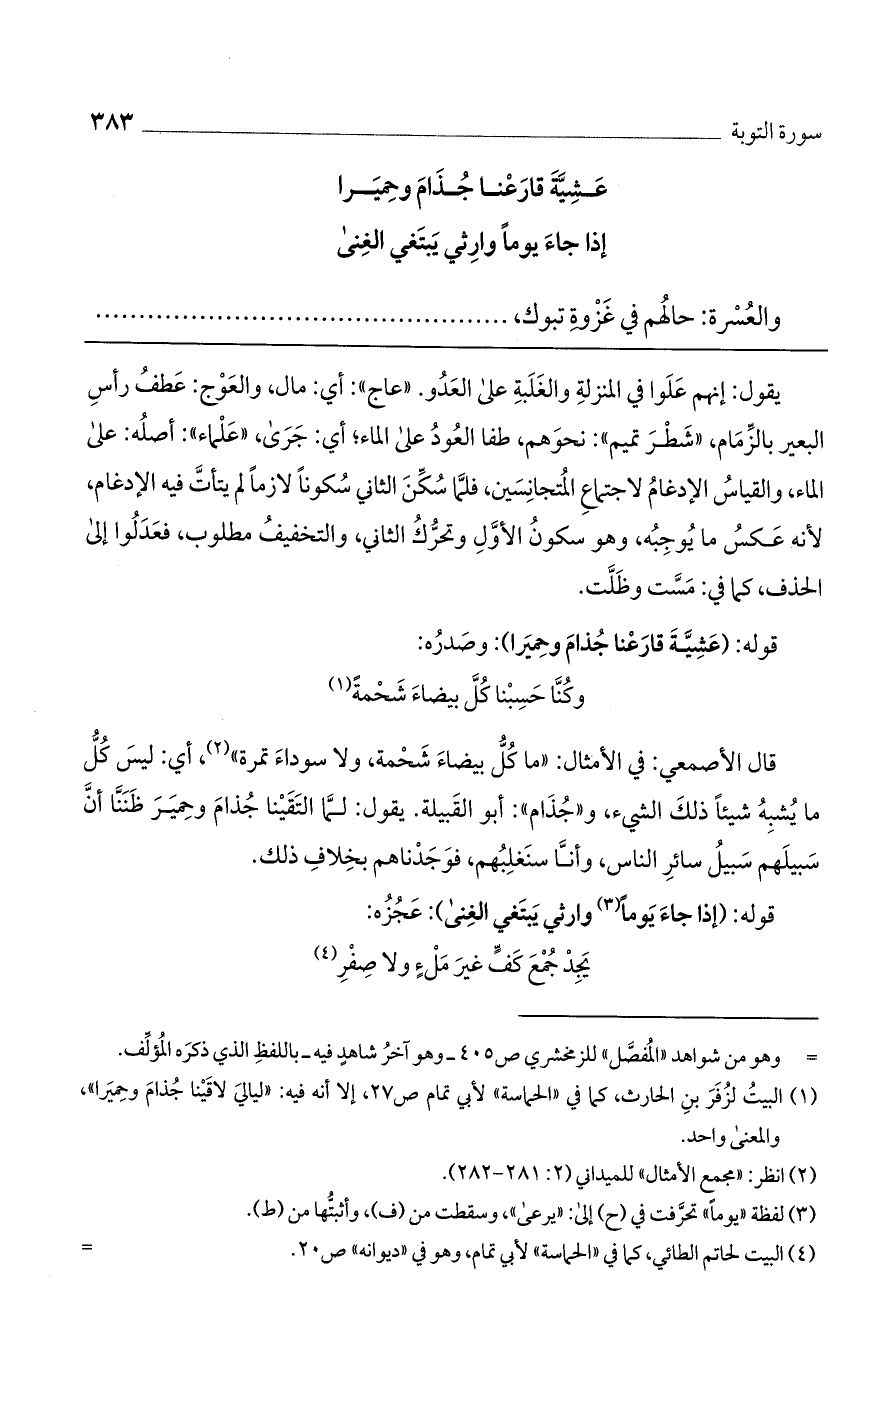 سورة التوبة ٣٨٣
عَـشِيَّةَ قارَعْنـا جُـذَامَ وحِميَـرا
إذا جاءَ يوماً وارِثي يَبتَغي الغِنىٰ
والعُسْرة: حالُهم في غَزْوةِ تبوك، ................................................
يقول: إنهم عَلَوا في المنزلةِ والغَلَبةِ علىٰ العَدُو. «عاج»: أي: مال، والعَوْج: عَطفُ رأسِ
البعير بالزِّمَام، «شَطْرَ تميم»: نحوَهم، طفا العُودُ علىٰ الماء؛ أي: جَرَىٰ، «عَلْماء»: أصلُه: علىٰ
الماء، والقياسُ الإدغامُ لاجتماعِ المُتجانِسَين، فلمَّا سُكِّنَ الثاني سُكوناً لازماً لم يتأتَّ فيه الإدغام،
لأنه عَـكسُ ما يُوجِبُه، وهو سكونُ الأوَّلِ وتحرُّكُ الثاني، والتخفيفُ مطلوب، فعَدَلُوا إلىٰ
الحذف، كما في: مَسَّت وظَلَّت.
قوله: (عَشِيَّـةَ قارَعْنا جُذامَ وحِميَرا): وصَدرُه:
وكُنَّا حَسِبْنا كُلَّ بيضاءَ شَحْمةً(١)
قال الأصمعي: في الأمثال: «ما كُلُّ بيضاءَ شَحْمة، ولا سوداءَ تمرة»(٢)، أي: ليسَ كُلُّ
ما يُشبِهُ شيئاً ذلكَ الشيء، و«جُذَام»: أبو القَبيلة. يقول: لـمَّا التَقَيْنا جُذامَ وحِميَرَ ظَنَنَّا أنَّ
سَبيلَهم سَبيلُ سائرِ الناس، وأنَّا سنَغلِبُهم، فوَجَدْناهم بخِلافِ ذلك.
قوله: (إذا جاءَ يَوماً(٣) وارثي يَبتَغي الغِنىٰ): عَجُزُه:
يَجِدْ جُمْعَ كَفٍّ غيرَ مَلْءٍ ولا صِفْرِ(٤)
= وهو من شواهد «المُفصَّل» للزمخشري ص٤٠٥ ـ وهو آخرُ شاهدٍ فيه ـ باللفظِ الذي ذكرَه المُؤلِّف.
(١) البيتُ لزُفَرَ بنِ الحارث، كما في «الحماسة» لأبي تمام ص٢٧، إلا أنه فيه: «لياليَ لاقَيْنا جُذامَ وحِميَرا»،
والمعنىٰ واحد.
(٢) انظر: «مجمع الأمثال» للميداني (٢: ٢٨١-٢٨٢).
(٣) لفظة «يوماً» تحرَّفت في (ح) إلىٰ: «يرعىٰ»، وسقطت من (ف)، وأثبتُّها من (ط).
(٤) البيت لحاتم الطائي، كما في «الحماسة» لأبي تمام، وهو في «ديوانه» ص٢٠. =